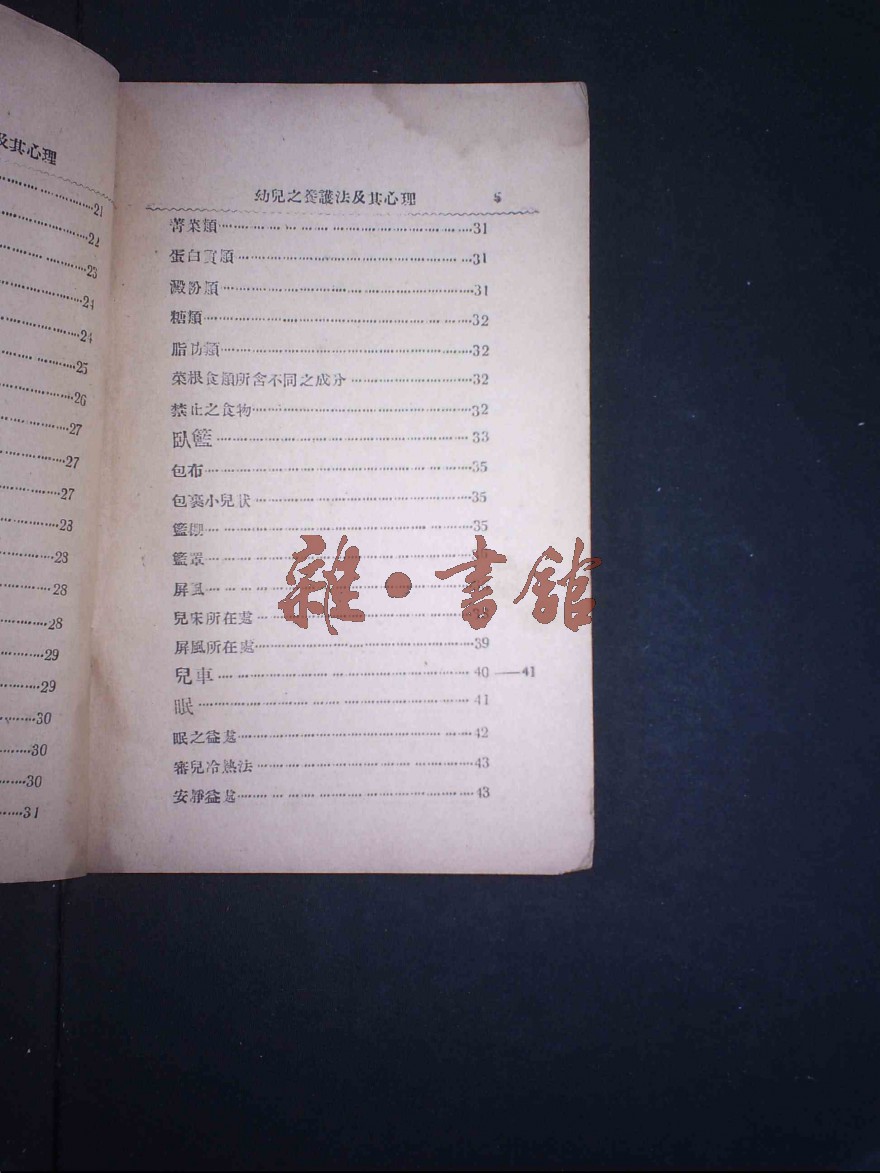 及其心理
21
22
23
24
24
25
26
27
27
27
28
28
28
28
29
29
30
30
30
31
幼兒之養護法及其心理 5
菁菜類 31
蛋白質類 31
澱粉類 31
糖類 32
脂肪類 32
菜根食類所含不同之成分 32
禁止之食物 32
臥籃 33
包布 35
包裹小兒狀 35
籃棚 35
籃罩
屏風
兒床所在處
屏風所在處 39
兒車 40—41
眠 41
眠之益處 42
審兒冷熱法 43
安靜益處 43
雜·書館